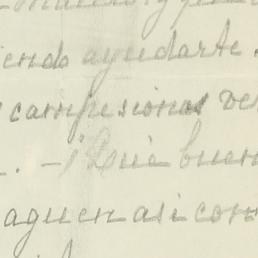 iendo ayudarte
campesionos ve
. - ¡Que buen
aguen asi com